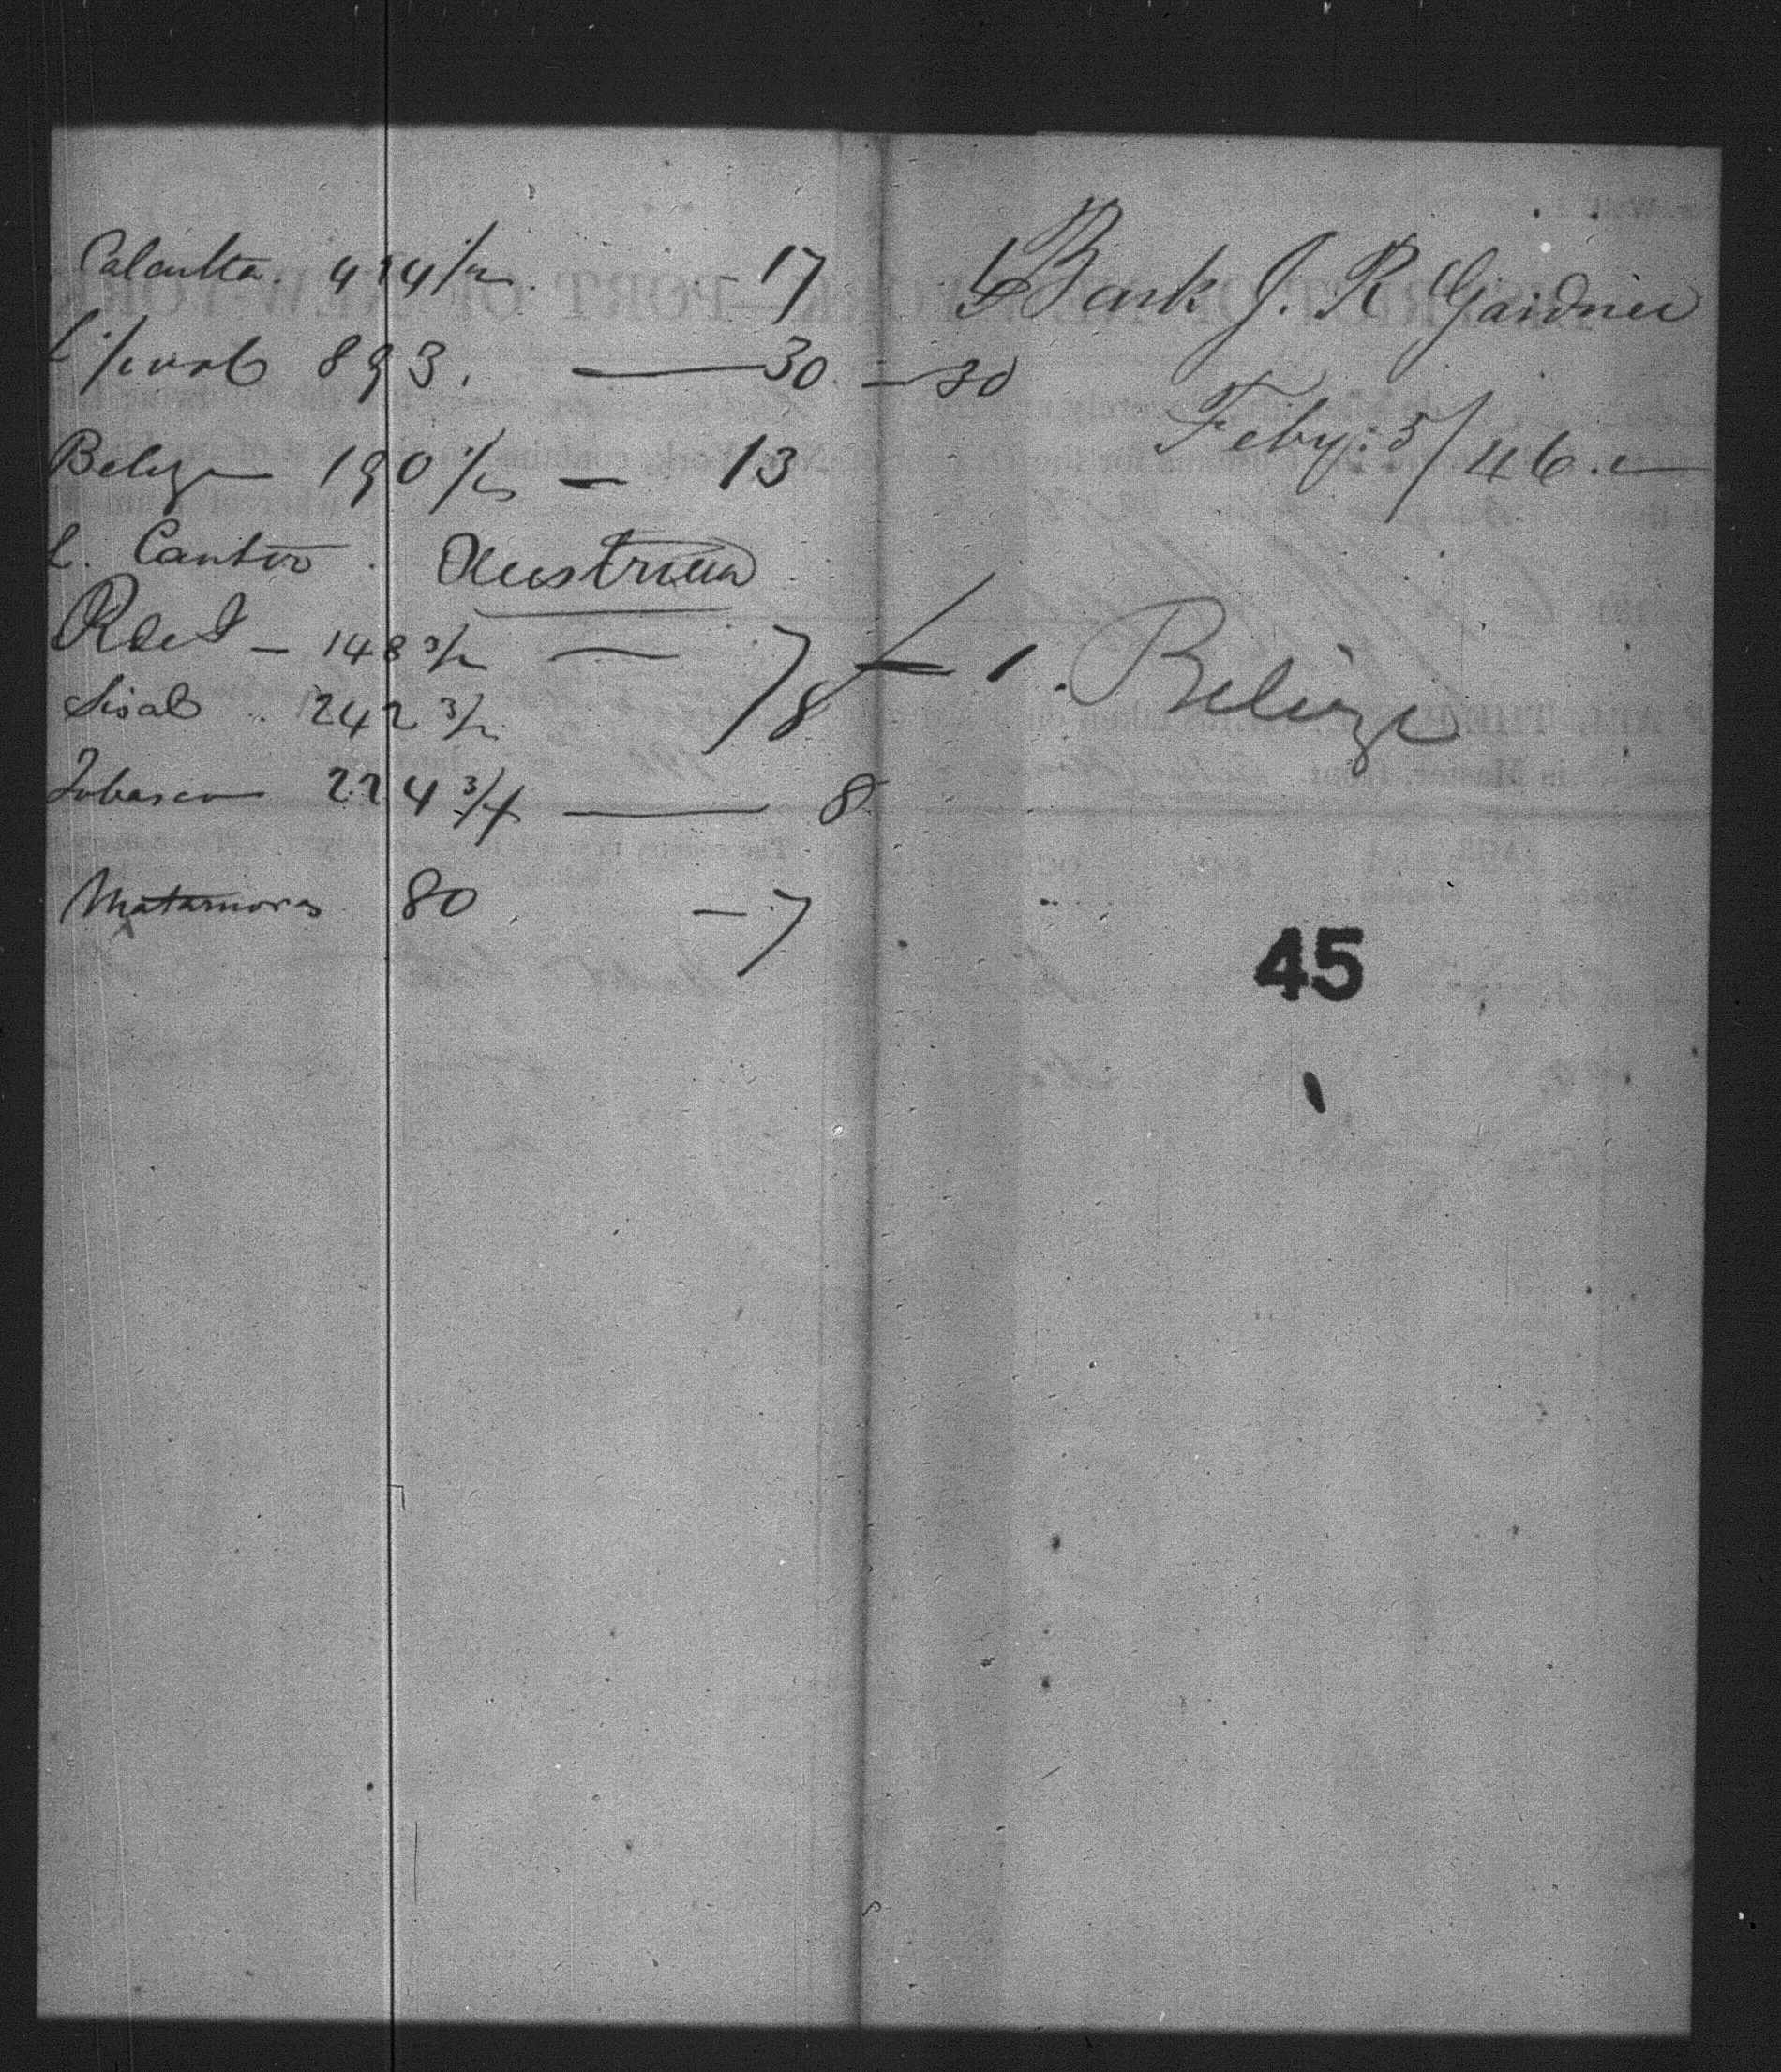 Calcutta. 414 1/2. - 17
L'pool 893. — 30 - 30
Belize 190 1/2 - 13
L. Canton. Austrian
R de J - 148 3/4 — 7
Sisal 242 3/4 / 8
Tobasco 224 3/4 — 8
Matamoras 80 - 7
Bark J. R Gardner
Feby: 5/46.
1. Belize
45